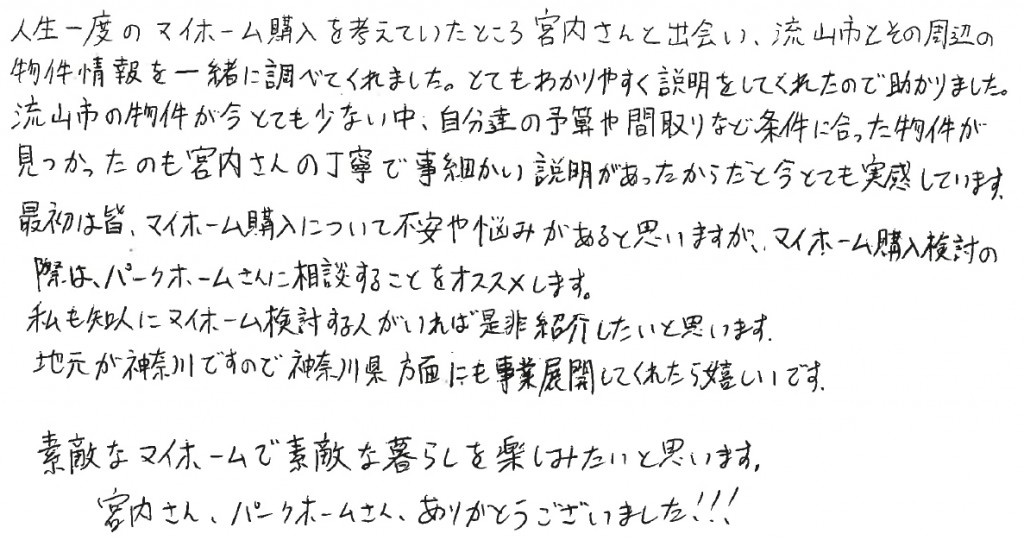 人生一度のマイホーム購入を考えていたところ宮内さんと出会い、流山市とその周辺の
物件情報を一緒に調べてくれました。とてもわかりやすく説明をしてくれたので助かりました。
流山市の物件が今とても少ない中、自分達の予算や間取りなど条件に合った物件が
見つかったのも宮内さんの丁寧で事細かい説明があったからだと今とても実感しています。
最初は皆、マイホーム購入について不安や悩みがあると思いますが、マイホーム購入検討の
際は、パークホームさんに相談することをオススメします。
私も知人にマイホーム検討する人がいれば是非紹介したいと思います。
地元が神奈川ですので神奈川県方面にも事業展開してくれたら嬉しいです。
素敵なマイホームで素敵な暮らしを楽しみたいと思います。
宮内さん、パークホームさん、ありがとうございました!!!